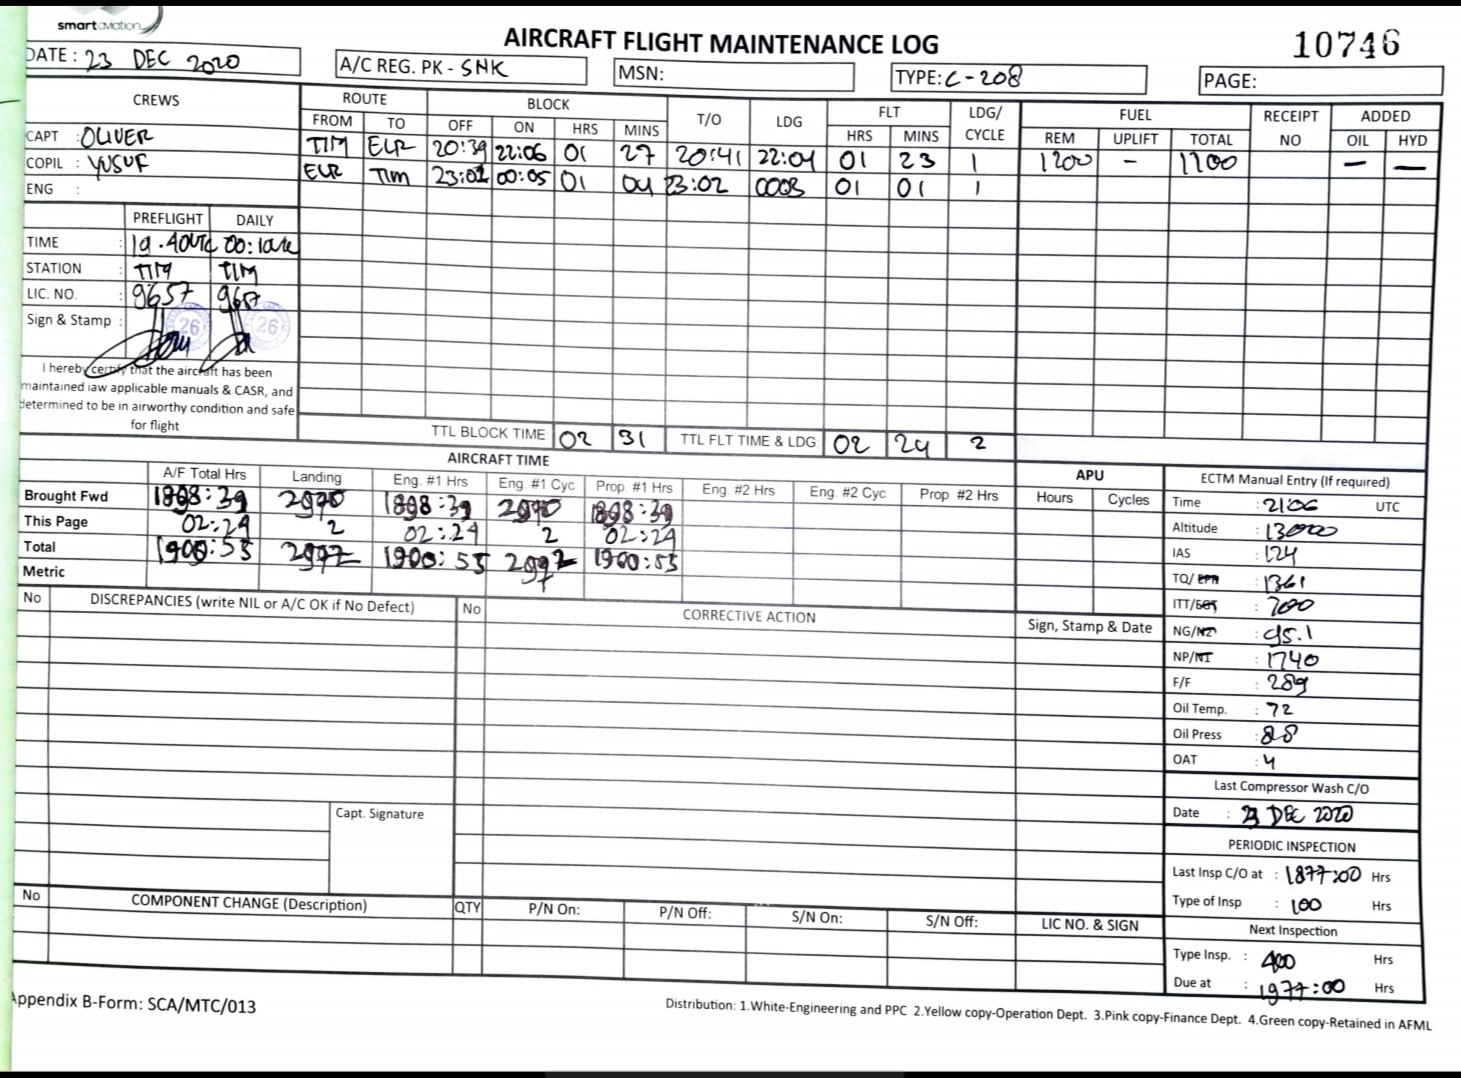 smartaviation
AIRCRAFT FLIGHT MAINTENANCE LOG
10746
DATE : 23 DEC 2020
A/C REG. PK - SNK
MSN:
TYPE: C-208
PAGE:
CREWS
ROUTE BLOCK T/O LDG FLT LDG/ CYCLE FUEL RECEIPT NO ADDED
FROM TO OFF ON HRS MINS HRS MINS REM UPLIFT TOTAL OIL HYD
CAPT : OLIVER
COPIL : YUSUF
ENG :
TIM ELR 20:39 22:06 01 27 20:41 22:04 01 23 1 1200 - 1200 - -
ELR TIM 00:05 01 04 23:02 0003 01 01 1
PREFLIGHT DAILY
TIME : 19.40UTC 00:10UTC
STATION : TIM TIM
LIC. NO. : 9657 9657
Sign & Stamp :
26 26
I hereby certify that the aircraft has been
maintained iaw applicable manuals & CASR, and
determined to be in airworthy condition and safe
for flight
TTL BLOCK TIME: 02 31 TTL FLT TIME & LDG: 02 24 2
AIRCRAFT TIME
A/F Total Hrs Landing Eng. #1 Hrs Eng. #1 Cyc Prop. #1 Hrs Eng. #2 Hrs Eng. #2 Cyc Prop #2 Hrs
APU
Hours Cycles
Brought Fwd
This Page 02:24 2 02:24 2 02:24
Total
Metric
ECTM Manual Entry (If required)
Time : 2106 UTC
Altitude : 13000
IAS : 124
TQ/EPR : 1361
ITT/EGT : 700
NG/N2 : 95.1
NP/N1 : 1740
F/F : 289
Oil Temp. : 72
Oil Press : 88
OAT : 4
Last Compressor Wash C/O
Date : 23 DEC 2020
PERIODIC INSPECTION
Last Insp C/O at : 1877:00 Hrs
Type of Insp : 100 Hrs
Next Inspection
Type Insp. : 400 Hrs
Due at : 1977:00 Hrs
No DISCREPANCIES (write NIL or A/C OK if No Defect) No CORRECTIVE ACTION Sign, Stamp & Date
Capt. Signature
No COMPONENT CHANGE (Description) QTY P/N On: P/N Off: S/N On: S/N Off: LIC NO. & SIGN
Appendix B-Form: SCA/MTC/013
Distribution: 1.White-Engineering and PPC 2.Yellow copy-Operation Dept. 3.Pink copy-Finance Dept. 4.Green copy-Retained in AFML